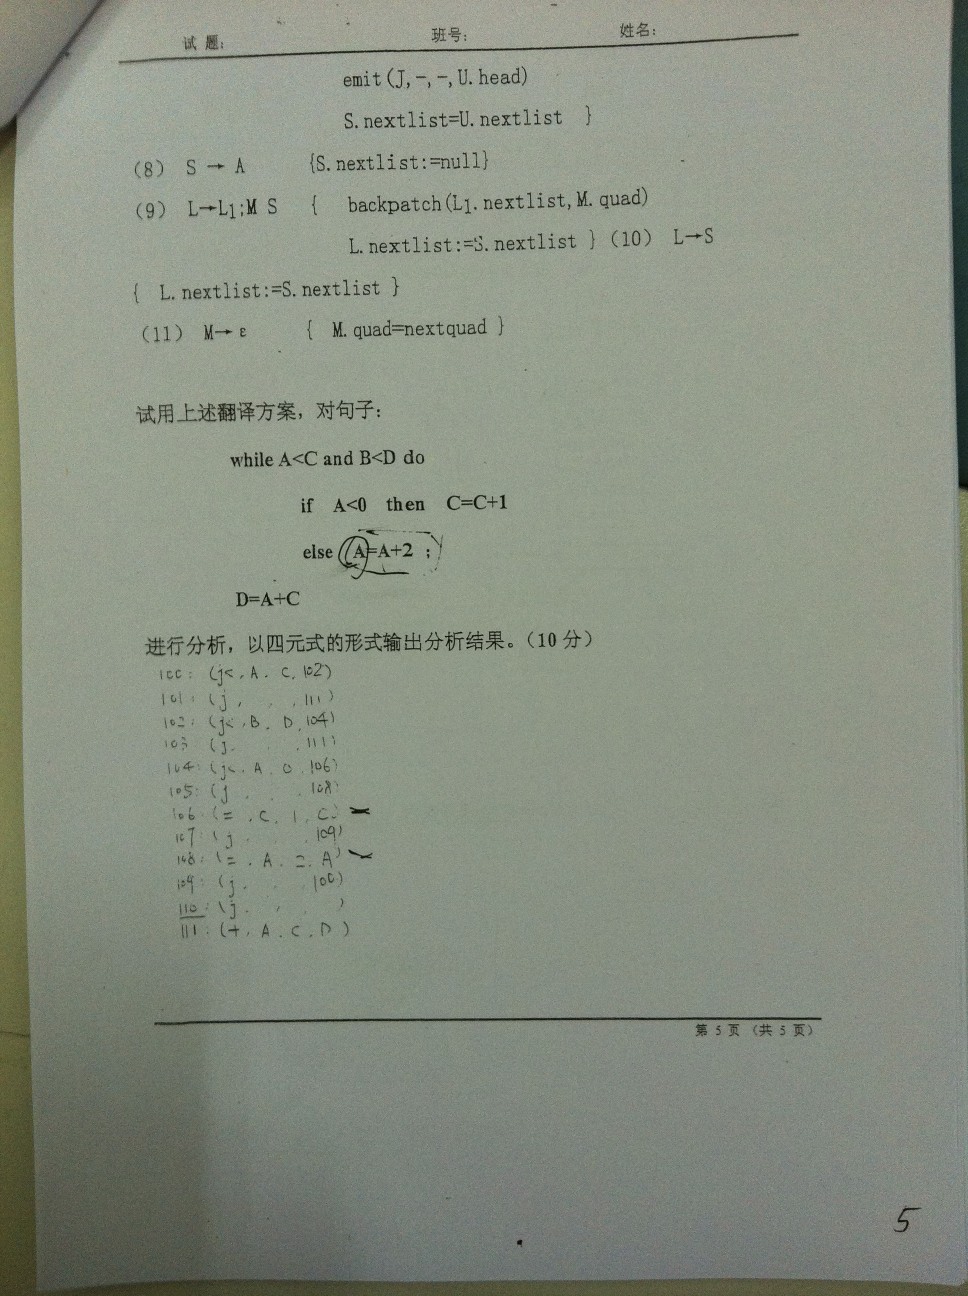 试 题： 班号： 姓名：
emit(J,-,-,U.head)
S.nextlist=U.nextlist }
(8) S → A {S.nextlist:=null}
(9) L→L1;M S { backpatch(L1.nextlist,M.quad)
L.nextlist:=S.nextlist } (10) L→S
{ L.nextlist:=S.nextlist }
(11) M→ ε { M.quad=nextquad }
试用上述翻译方案，对句子：
while A<C and B<D do
if A<0 then C=C+1
else A=A+2 ;
D=A+C
进行分析，以四元式的形式输出分析结果。（10 分）
100: (j<, A, C, 102)
101: (j, , , 111)
102: (j<, B, D, 104)
103: (j, , , 111)
104: (j<, A, 0, 106)
105: (j, , , 108)
106: (=, C, 1, C)
107: (j, , , 109)
108: (=, A, 2, A)
109: (j, , , 100)
110: (j, , , )
111: (+, A, C, D)
第 5 页 （共 5 页）
5